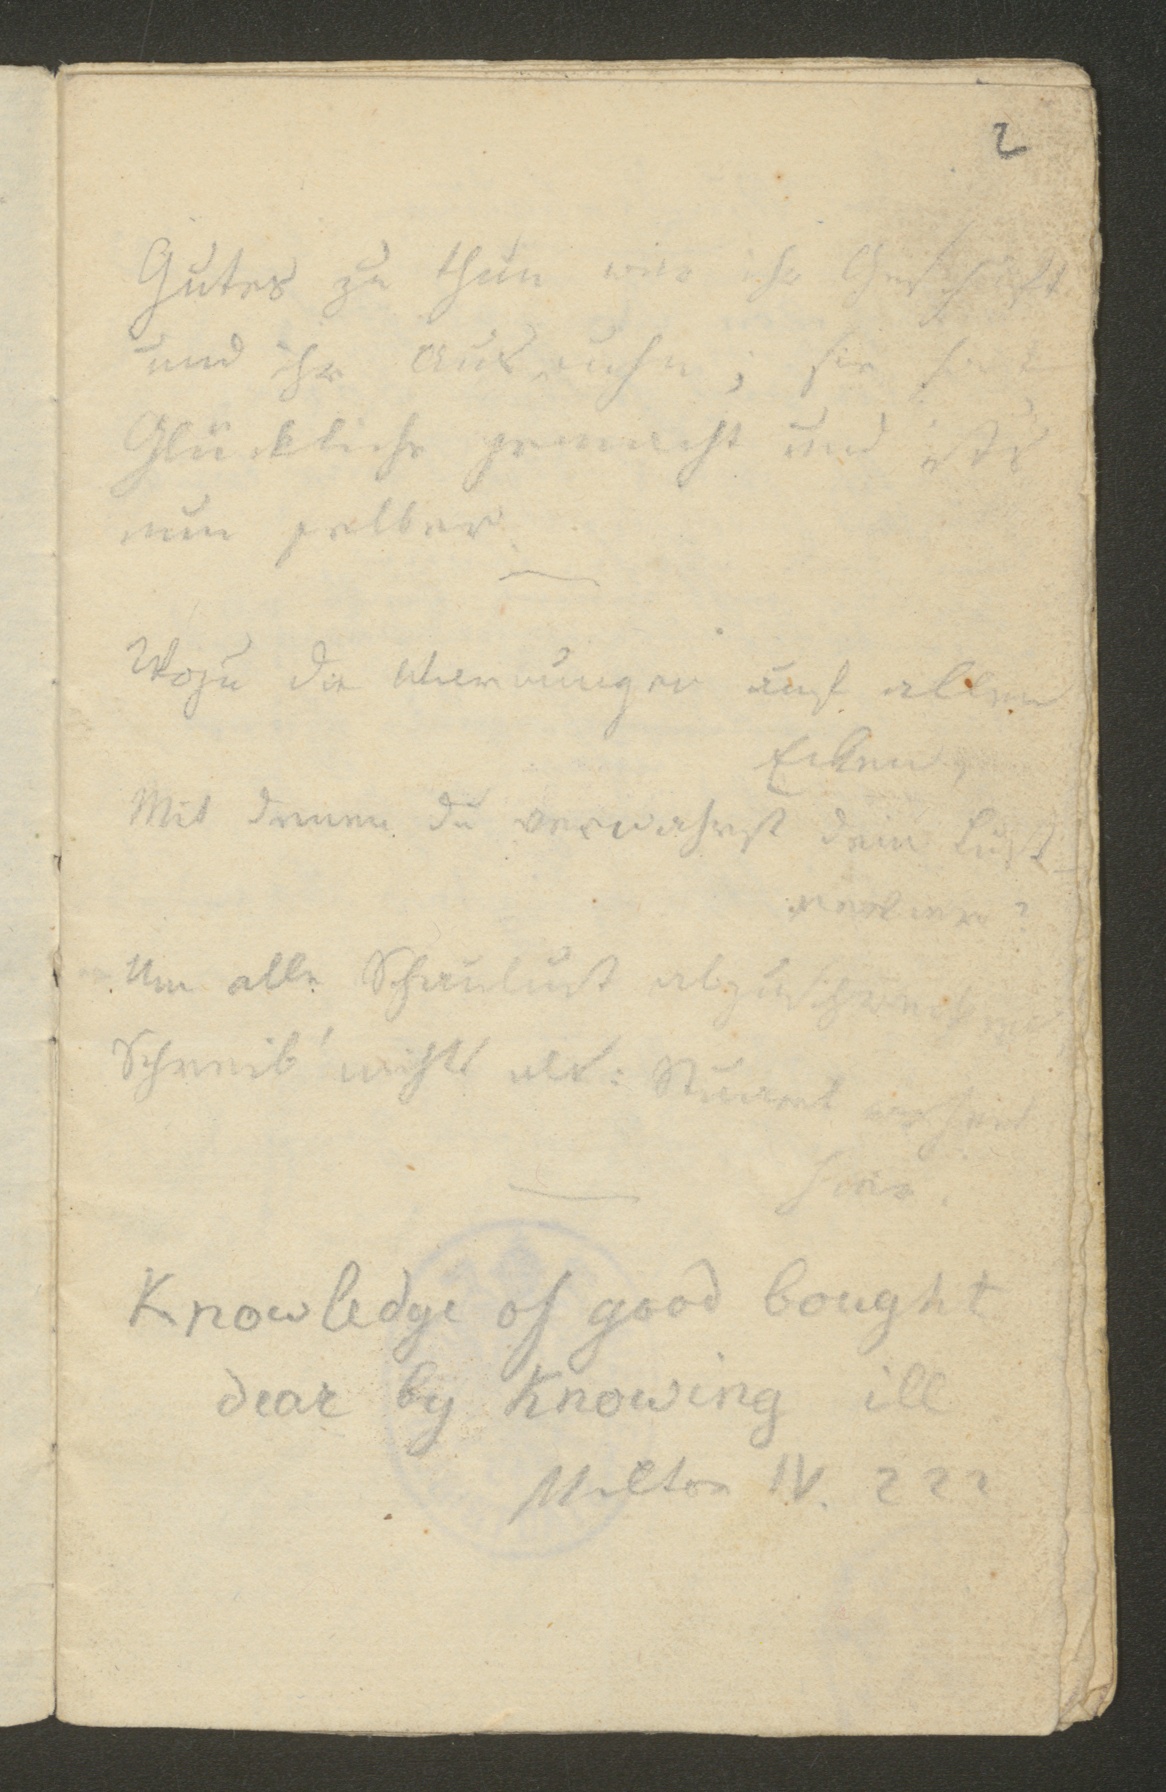 2
Gutes zu thun war ihr Geschäft
und ihr Ausruhn; sie hat
Glückliche gemacht und ists
nun selber.
Wozu die Warnungen auf allen
Ecken,
Mit denen du verwahrst dein Lust
revier?
Um alle Schaulust abzuschrecken
Schreib' nichts als: Stuart wohnt
hier.
Knowledge of good bought
dear by Knowing ill
Milton IV. 222